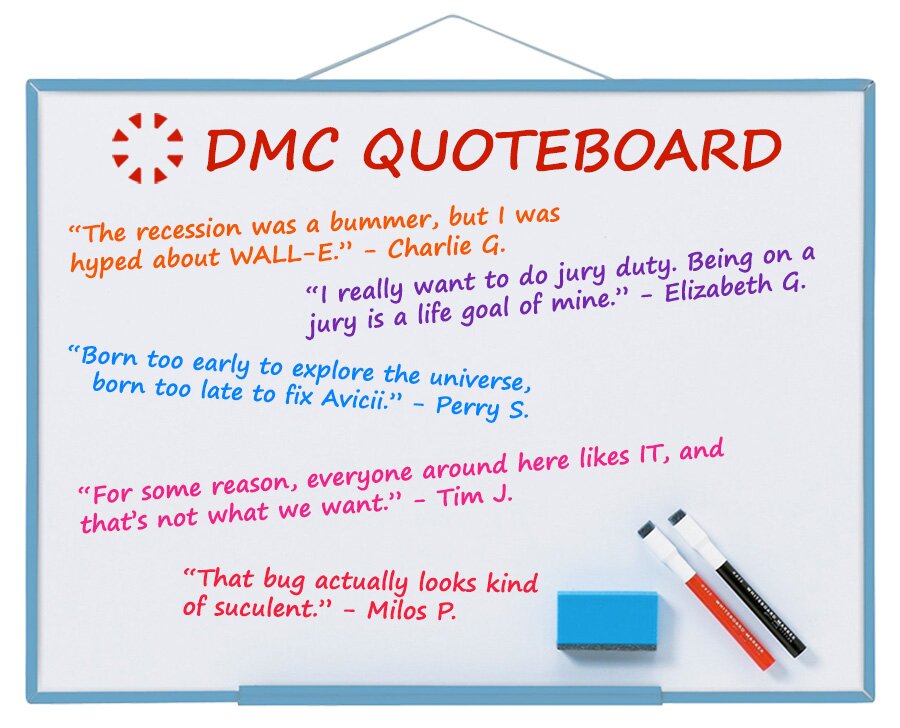 DMC QUOTEBOARD
“The recession was a bummer, but I was
hyped about WALL-E.” - Charlie G.
“I really want to do jury duty. Being on a
jury is a life goal of mine.” - Elizabeth G.
“Born too early to explore the universe,
born too late to fix Avicii.” - Perry S.
“For some reason, everyone around here likes IT, and
that’s not what we want.” - Tim J.
“That bug actually looks kind
of suculent.” - Milos P.
WHITEBOARD MARKER
WHITEBOARD MARKER